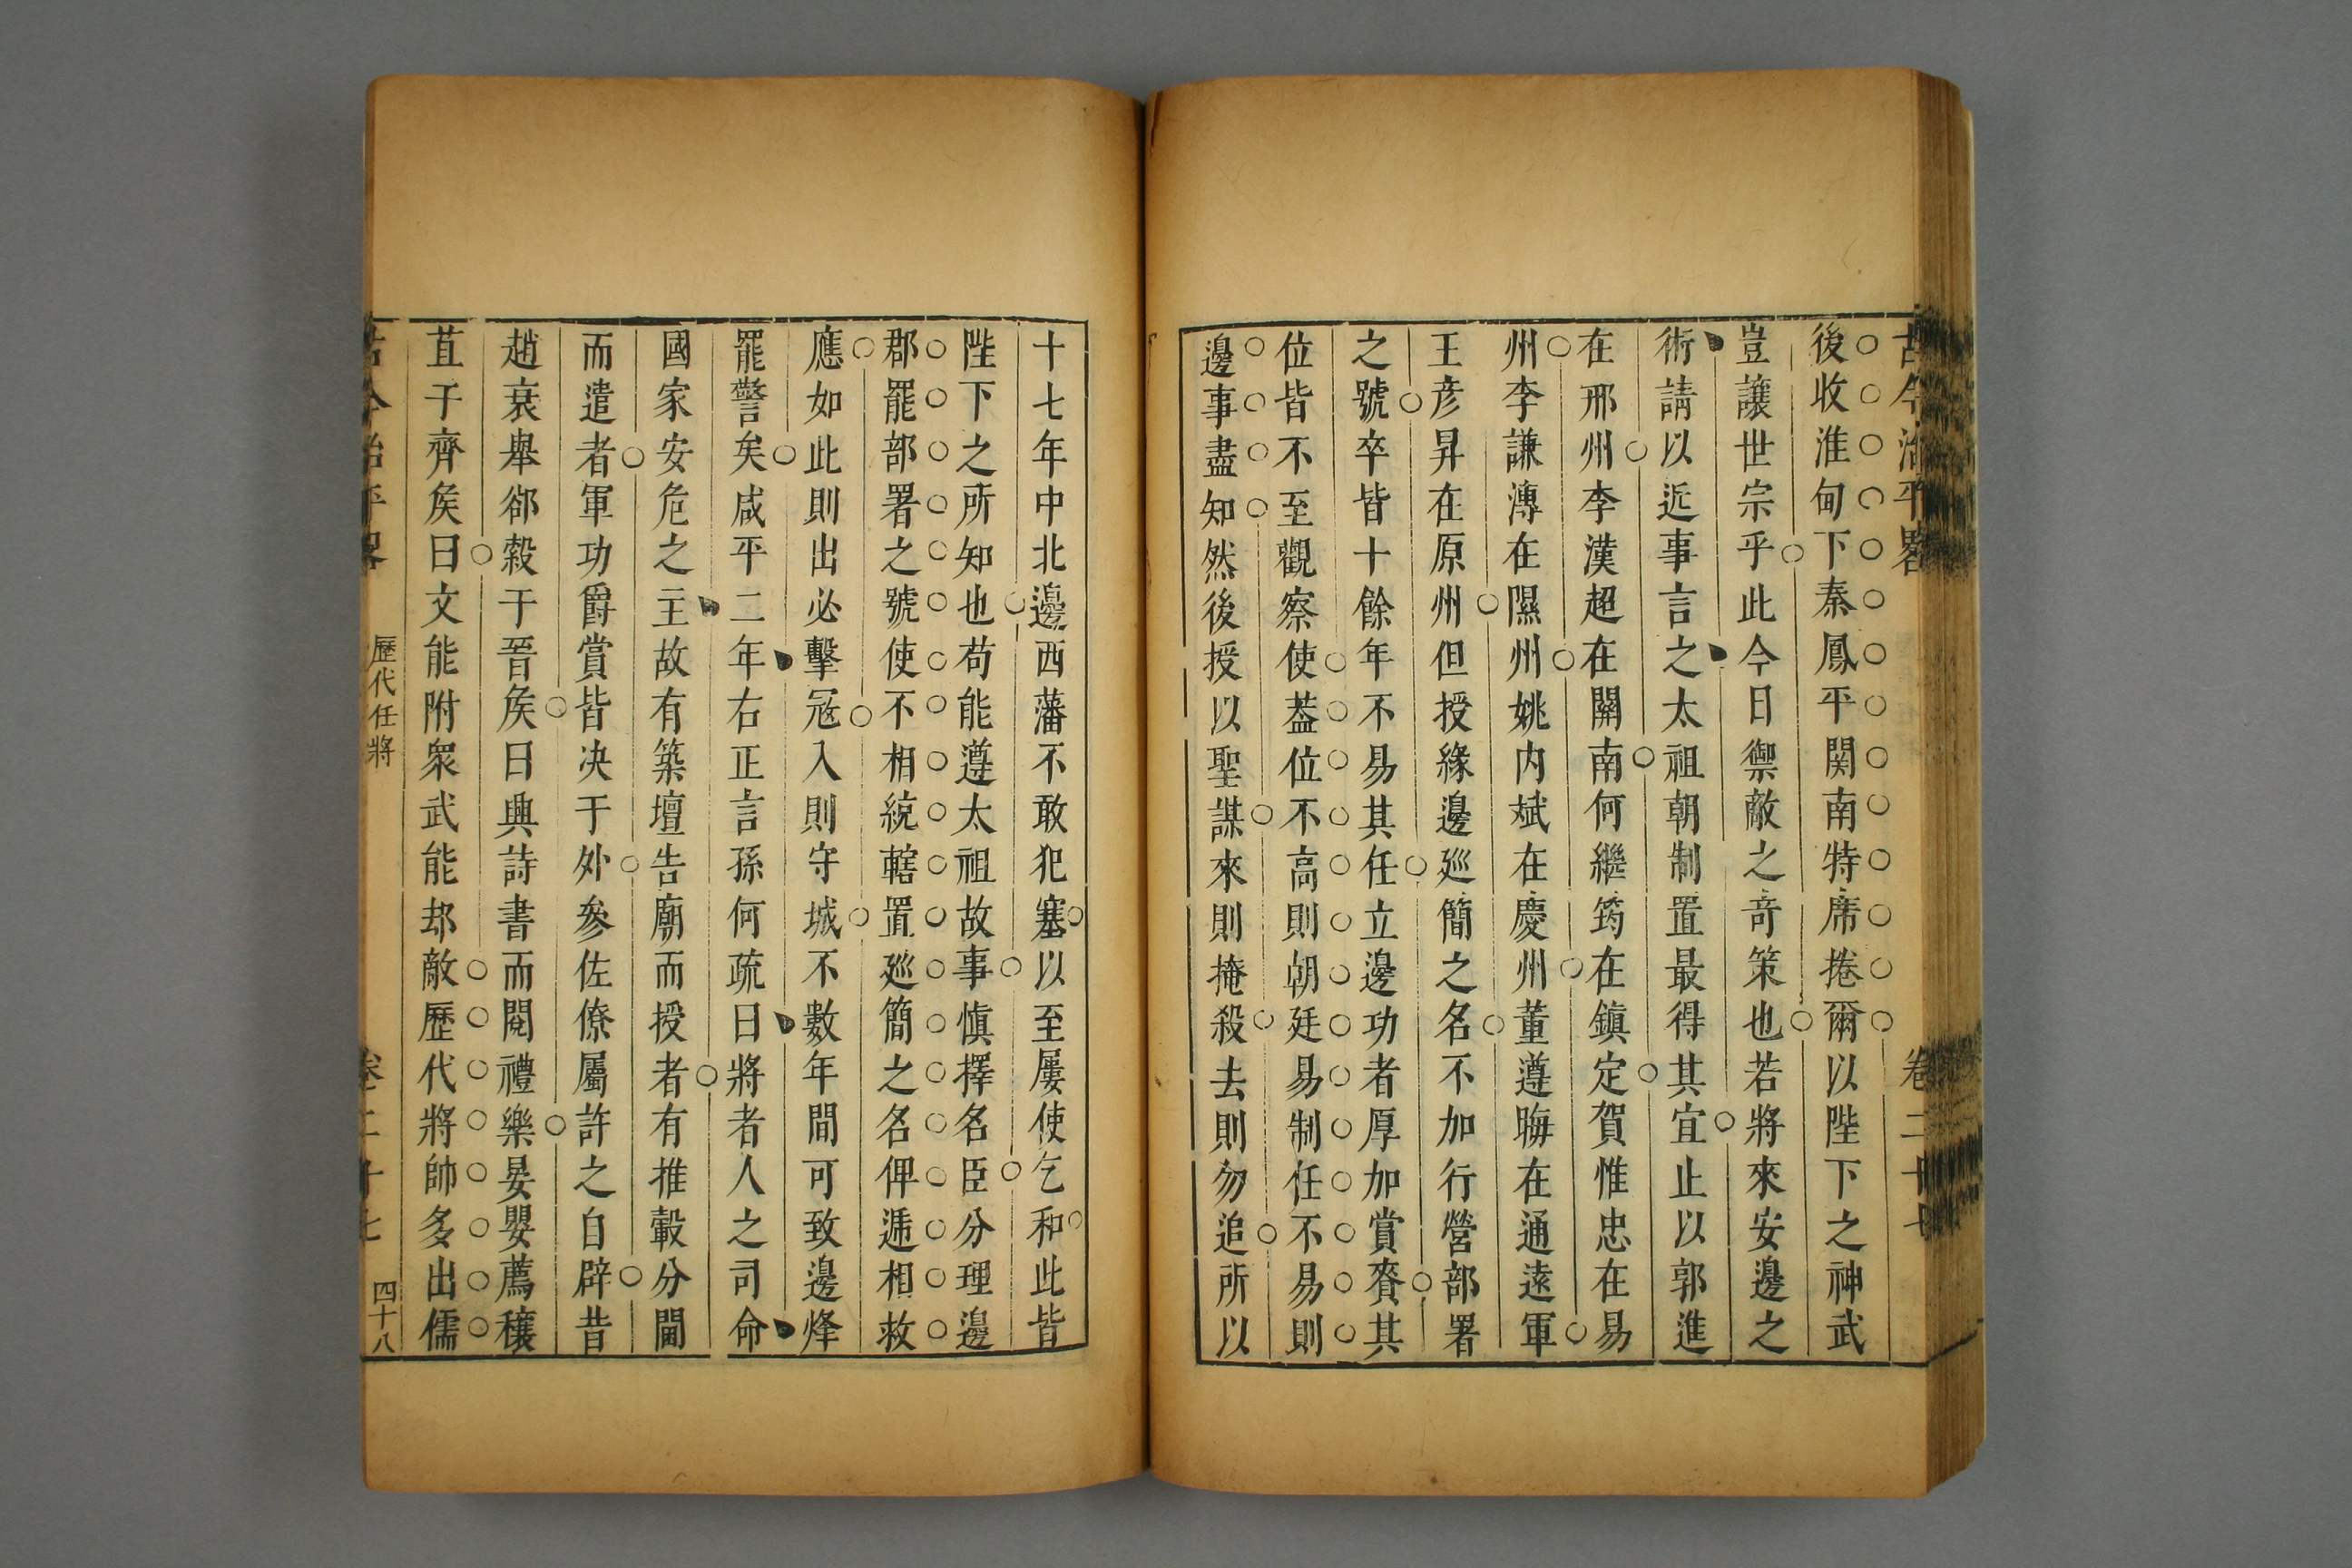 古今治平畧
卷二十七
後收淮甸下秦鳳平関南特席捲爾以陛下之神武
豈讓世宗乎此今日禦敵之奇策也若將來安邊之
術請以近事言之太祖朝制置最得其宜止以郭進
在邢州李漢超在關南何繼筠在鎮定賀惟忠在易
州李謙溥在隰州姚内斌在慶州董遵晦在通遠軍
王彥昇在原州但授緣邊廵簡之名不加行營部署
之號卒皆十餘年不易其任立邊功者厚加賞賚其
位皆不至觀察使葢位不高則朝廷易制任不易則
邊事盡知然後授以聖謀來則掩殺去則勿追所以
十七年中北邊西藩不敢犯塞以至屢使乞和此皆
陛下之所知也苟能遵太祖故事慎擇名臣分理邊
郡罷部署之號使不相統轄置廵簡之名俾遞相救
應如此則出必擊冦入則守城不數年間可致邊烽
罷警矣咸平二年右正言孫何疏曰將者人之司命
國家安危之主故有築壇告廟而授者有推轂分閫
而遣者軍功爵賞皆决于外參佐僚屬許之自辟昔
趙衰舉郤縠于晉矦曰典詩書而閱禮樂晏嬰薦穰
苴于齊矦曰文能附衆武能却敵歷代將帥多出儒
古今治平畧
歷代任將
卷二十七
四十八